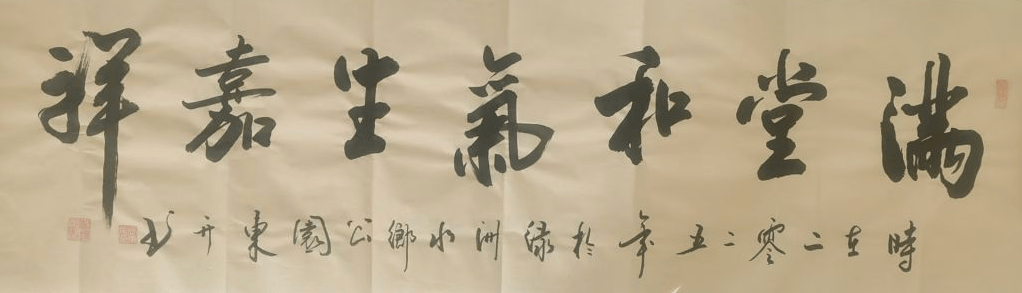 滿堂和氣生嘉祥
時在二零二五年於綠洲水鄉公園東升書